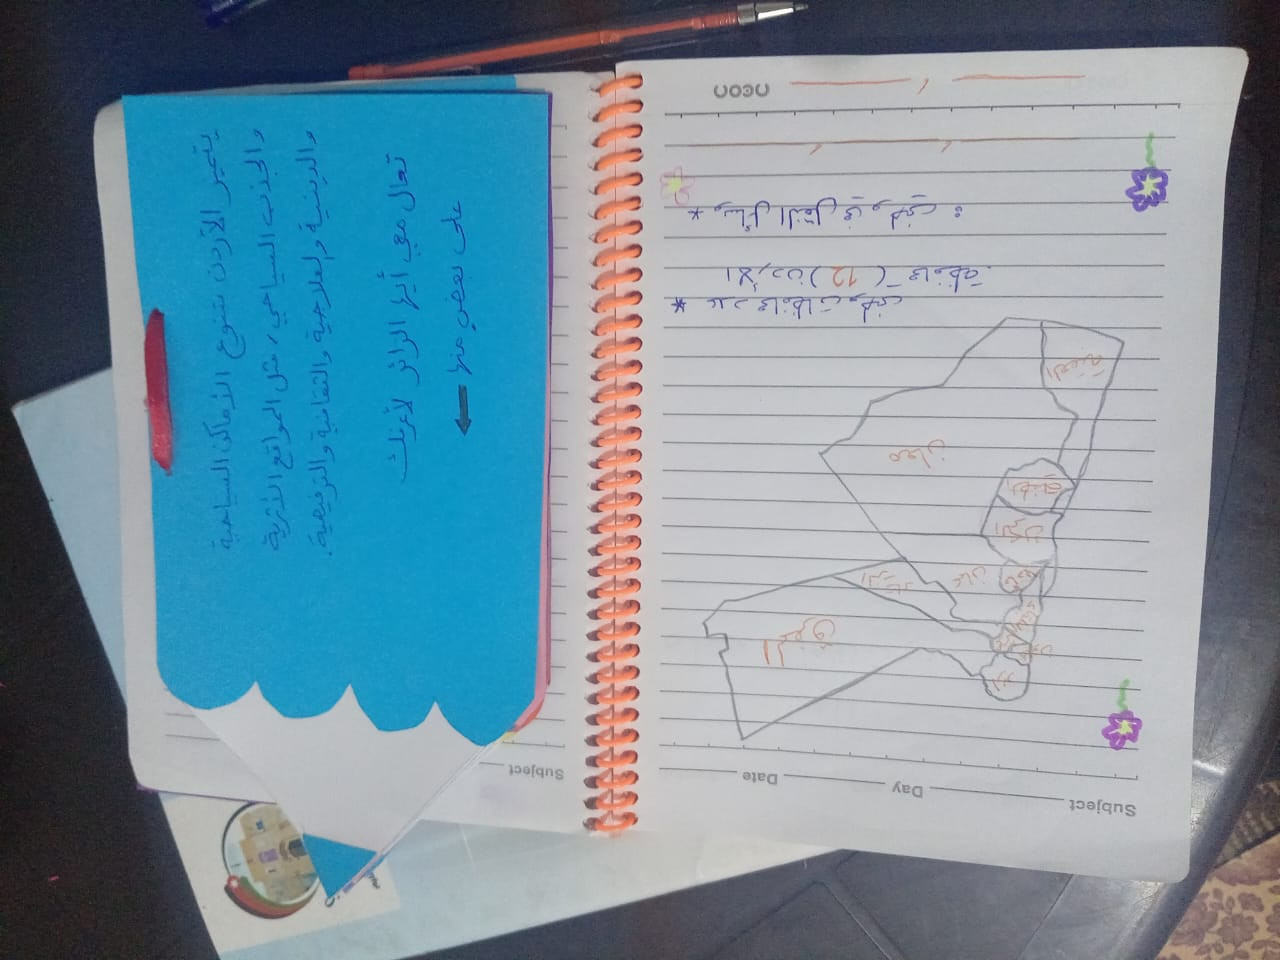 يتميز الأردن بتنوع الأماكن السياحية
والجذب السياحي، مثل المواقع الأثرية
والدينية والعلاجية والثقافية والترفيهية.
تعال معي أيها الزائر لأعرفك
على بعض منها
Subject
Subject
Day
Date
الزرقاء
المفرق
اربد
عجلون
جرش
عمان
مادبا
الكرك
الطفيلة
معان
العقبة
* عدد محافظات وطني
الأردن (12) محافظة.
* وسائل النقل في وطني:
neon